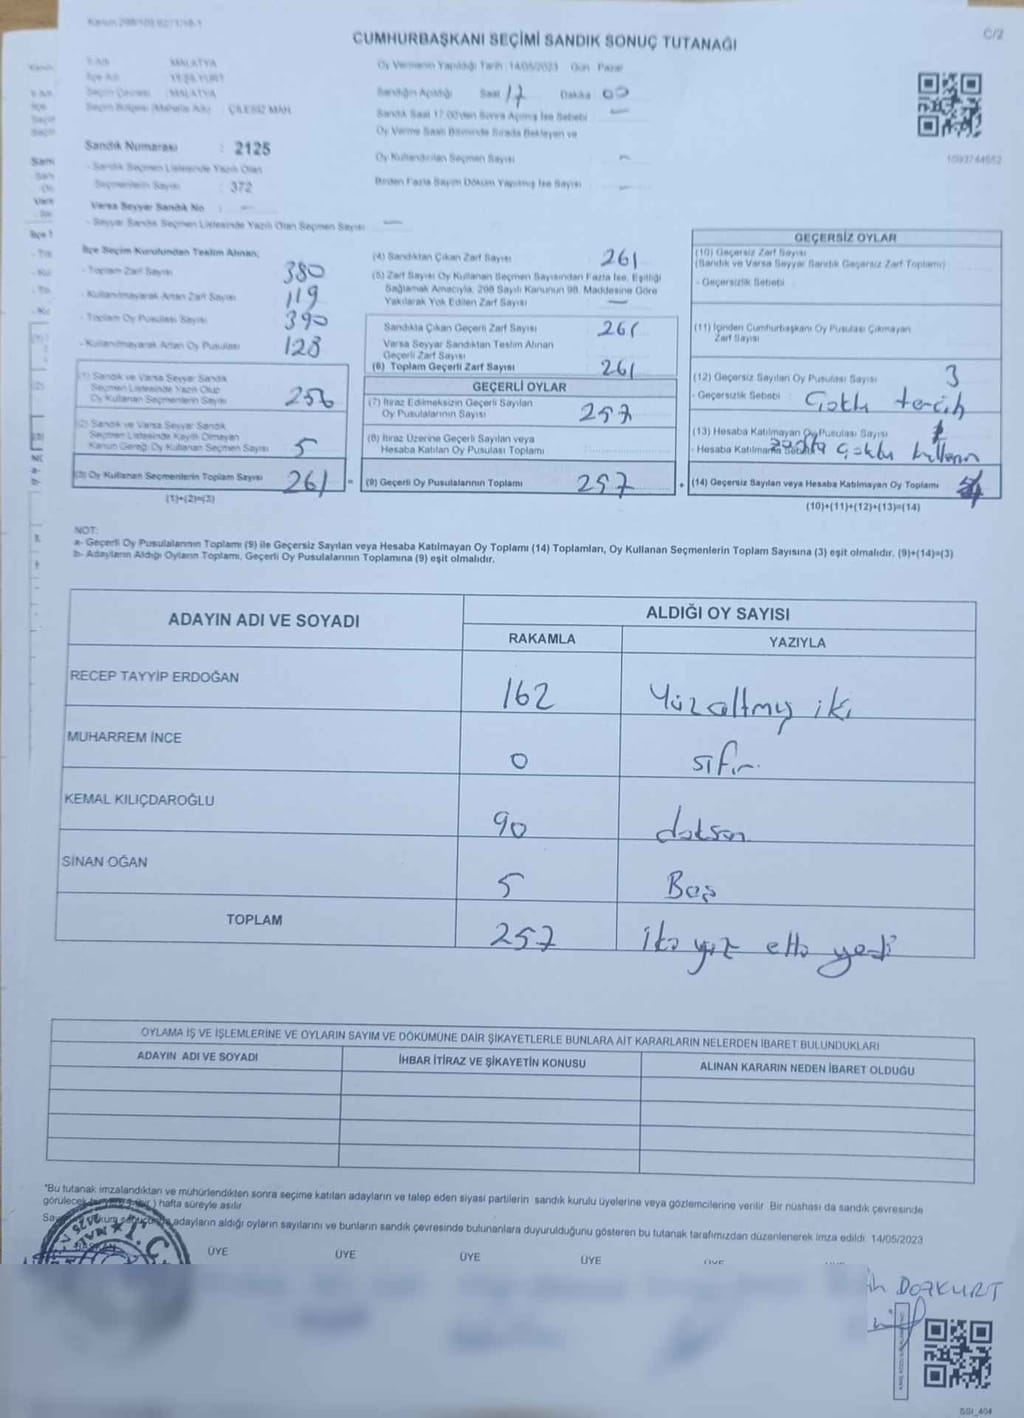 Kanun 298/105
C/2
CUMHURBAŞKANI SEÇİMİ SANDIK SONUÇ TUTANAĞI
İl Adı : MALATYA
İlçe Adı : YEŞİLYURT
Seçim Çevresi : MALATYA
Seçim Bölgesi (Mahalle Adı) : ÇİLESİZ MAH.
Sandık Numarası : 2125
- Sandık Seçmen Listesinde Yazılı Olan
Seçmenlerin Sayısı : 372
Varsa Seyyar Sandık No : —
- Seyyar Sandık Seçmen Listesinde Yazılı Olan Seçmen Sayısı —
Oy Vermenin Yapıldığı Tarih : 14/05/2023 Gün : Pazar
Sandığın Açıldığı Saat 17 Dakika 00
Sandık Saat 17:00'den Sonra Açılmış İse Sebebi —
Oy Verme Saati Bitiminde Sırada Bekleyen ve
Oy Kullandırılan Seçmen Sayısı —
Birden Fazla Sayım Döküm Yapılmış İse Sayısı —
1093744552
İlçe Seçim Kurulundan Teslim Alınan;
- Toplam Zarf Sayısı 380
- Kullanılmayarak Artan Zarf Sayısı 119
- Toplam Oy Pusulası Sayısı 390
- Kullanılmayarak Artan Oy Pusulası 128
(1) Sandık ve Varsa Seyyar Sandık
Seçmen Listesinde Yazılı Olup
Oy Kullanan Seçmenlerin Sayısı 256
(2) Sandık ve Varsa Seyyar Sandık
Seçmen Listesinde Kayıtlı Olmayan
Kanun Gereği Oy Kullanan Seçmen Sayısı 5
(3) Oy Kullanan Seçmenlerin Toplam Sayısı 261
(1)+(2)=(3)
(4) Sandıktan Çıkan Zarf Sayısı 261
(5) Zarf Sayısı Oy Kullanan Seçmen Sayısından Fazla İse, Eşitliği
Sağlamak Amacıyla, 298 Sayılı Kanunun 98. Maddesine Göre
Yakılarak Yok Edilen Zarf Sayısı —
Sandıkta Çıkan Geçerli Zarf Sayısı 261
Varsa Seyyar Sandıktan Teslim Alınan
Geçerli Zarf Sayısı
(6) Toplam Geçerli Zarf Sayısı 261
GEÇERLİ OYLAR
(7) İtiraz Edilmeksizin Geçerli Sayılan
Oy Pusulalarının Sayısı 257
(8) İtiraz Üzerine Geçerli Sayılan veya
Hesaba Katılan Oy Pusulası Toplamı
= (9) Geçerli Oy Pusulalarının Toplamı 257
GEÇERSİZ OYLAR
(10) Geçersiz Zarf Sayısı
(Sandık ve Varsa Seyyar Sandık Geçersiz Zarf Toplamı)
- Geçersizlik Sebebi :
(11) İçinden Cumhurbaşkanı Oy Pusulası Çıkmayan
Zarf Sayısı
(12) Geçersiz Sayılan Oy Pusulası Sayısı 3
- Geçersizlik Sebebi : Çoklu tercih
(13) Hesaba Katılmayan Oy Pusulası Sayısı 1
- Hesaba Katılmama Sebebi çoklu
+ (14) Geçersiz Sayılan veya Hesaba Katılmayan Oy Toplamı
(10)+(11)+(12)+(13)=(14)
NOT:
a- Geçerli Oy Pusulalarının Toplamı (9) ile Geçersiz Sayılan veya Hesaba Katılmayan Oy Toplamı (14) Toplamları, Oy Kullanan Seçmenlerin Toplam Sayısına (3) eşit olmalıdır. (9)+(14)=(3)
b- Adayların Aldığı Oyların Toplamı, Geçerli Oy Pusulalarının Toplamına (9) eşit olmalıdır.
ADAYIN ADI VE SOYADI
ALDIĞI OY SAYISI
RAKAMLA YAZIYLA
RECEP TAYYİP ERDOĞAN 162 Yüzaltmış iki
MUHARREM İNCE 0 sıfır
KEMAL KILIÇDAROĞLU 90 doksan
SİNAN OĞAN 5 Beş
TOPLAM 257 iki yüz elli yedi
OYLAMA İŞ VE İŞLEMLERİNE VE OYLARIN SAYIM VE DÖKÜMÜNE DAİR ŞİKAYETLERLE BUNLARA AİT KARARLARIN NELERDEN İBARET BULUNDUKLARI
ADAYIN ADI VE SOYADI İHBAR İTİRAZ VE ŞİKAYETİN KONUSU ALINAN KARARIN NEDEN İBARET OLDUĞU
*Bu tutanak imzalandıktan ve mühürlendikten sonra seçime katılan adayların ve talep eden siyasi partilerin sandık kurulu üyelerine veya gözlemcilerine verilir. Bir nüshası da sandık çevresinde
görülecek hafta süreyle asılır
adayların aldığı oyların sayılarını ve bunların sandık çevresinde bulunanlara duyurulduğunu gösteren bu tutanak tarafımızdan düzenlenerek imza edildi. 14/05/2023
ÜYE ÜYE ÜYE ÜYE ÜYE
T.C.
BOZKURT
SSI_404